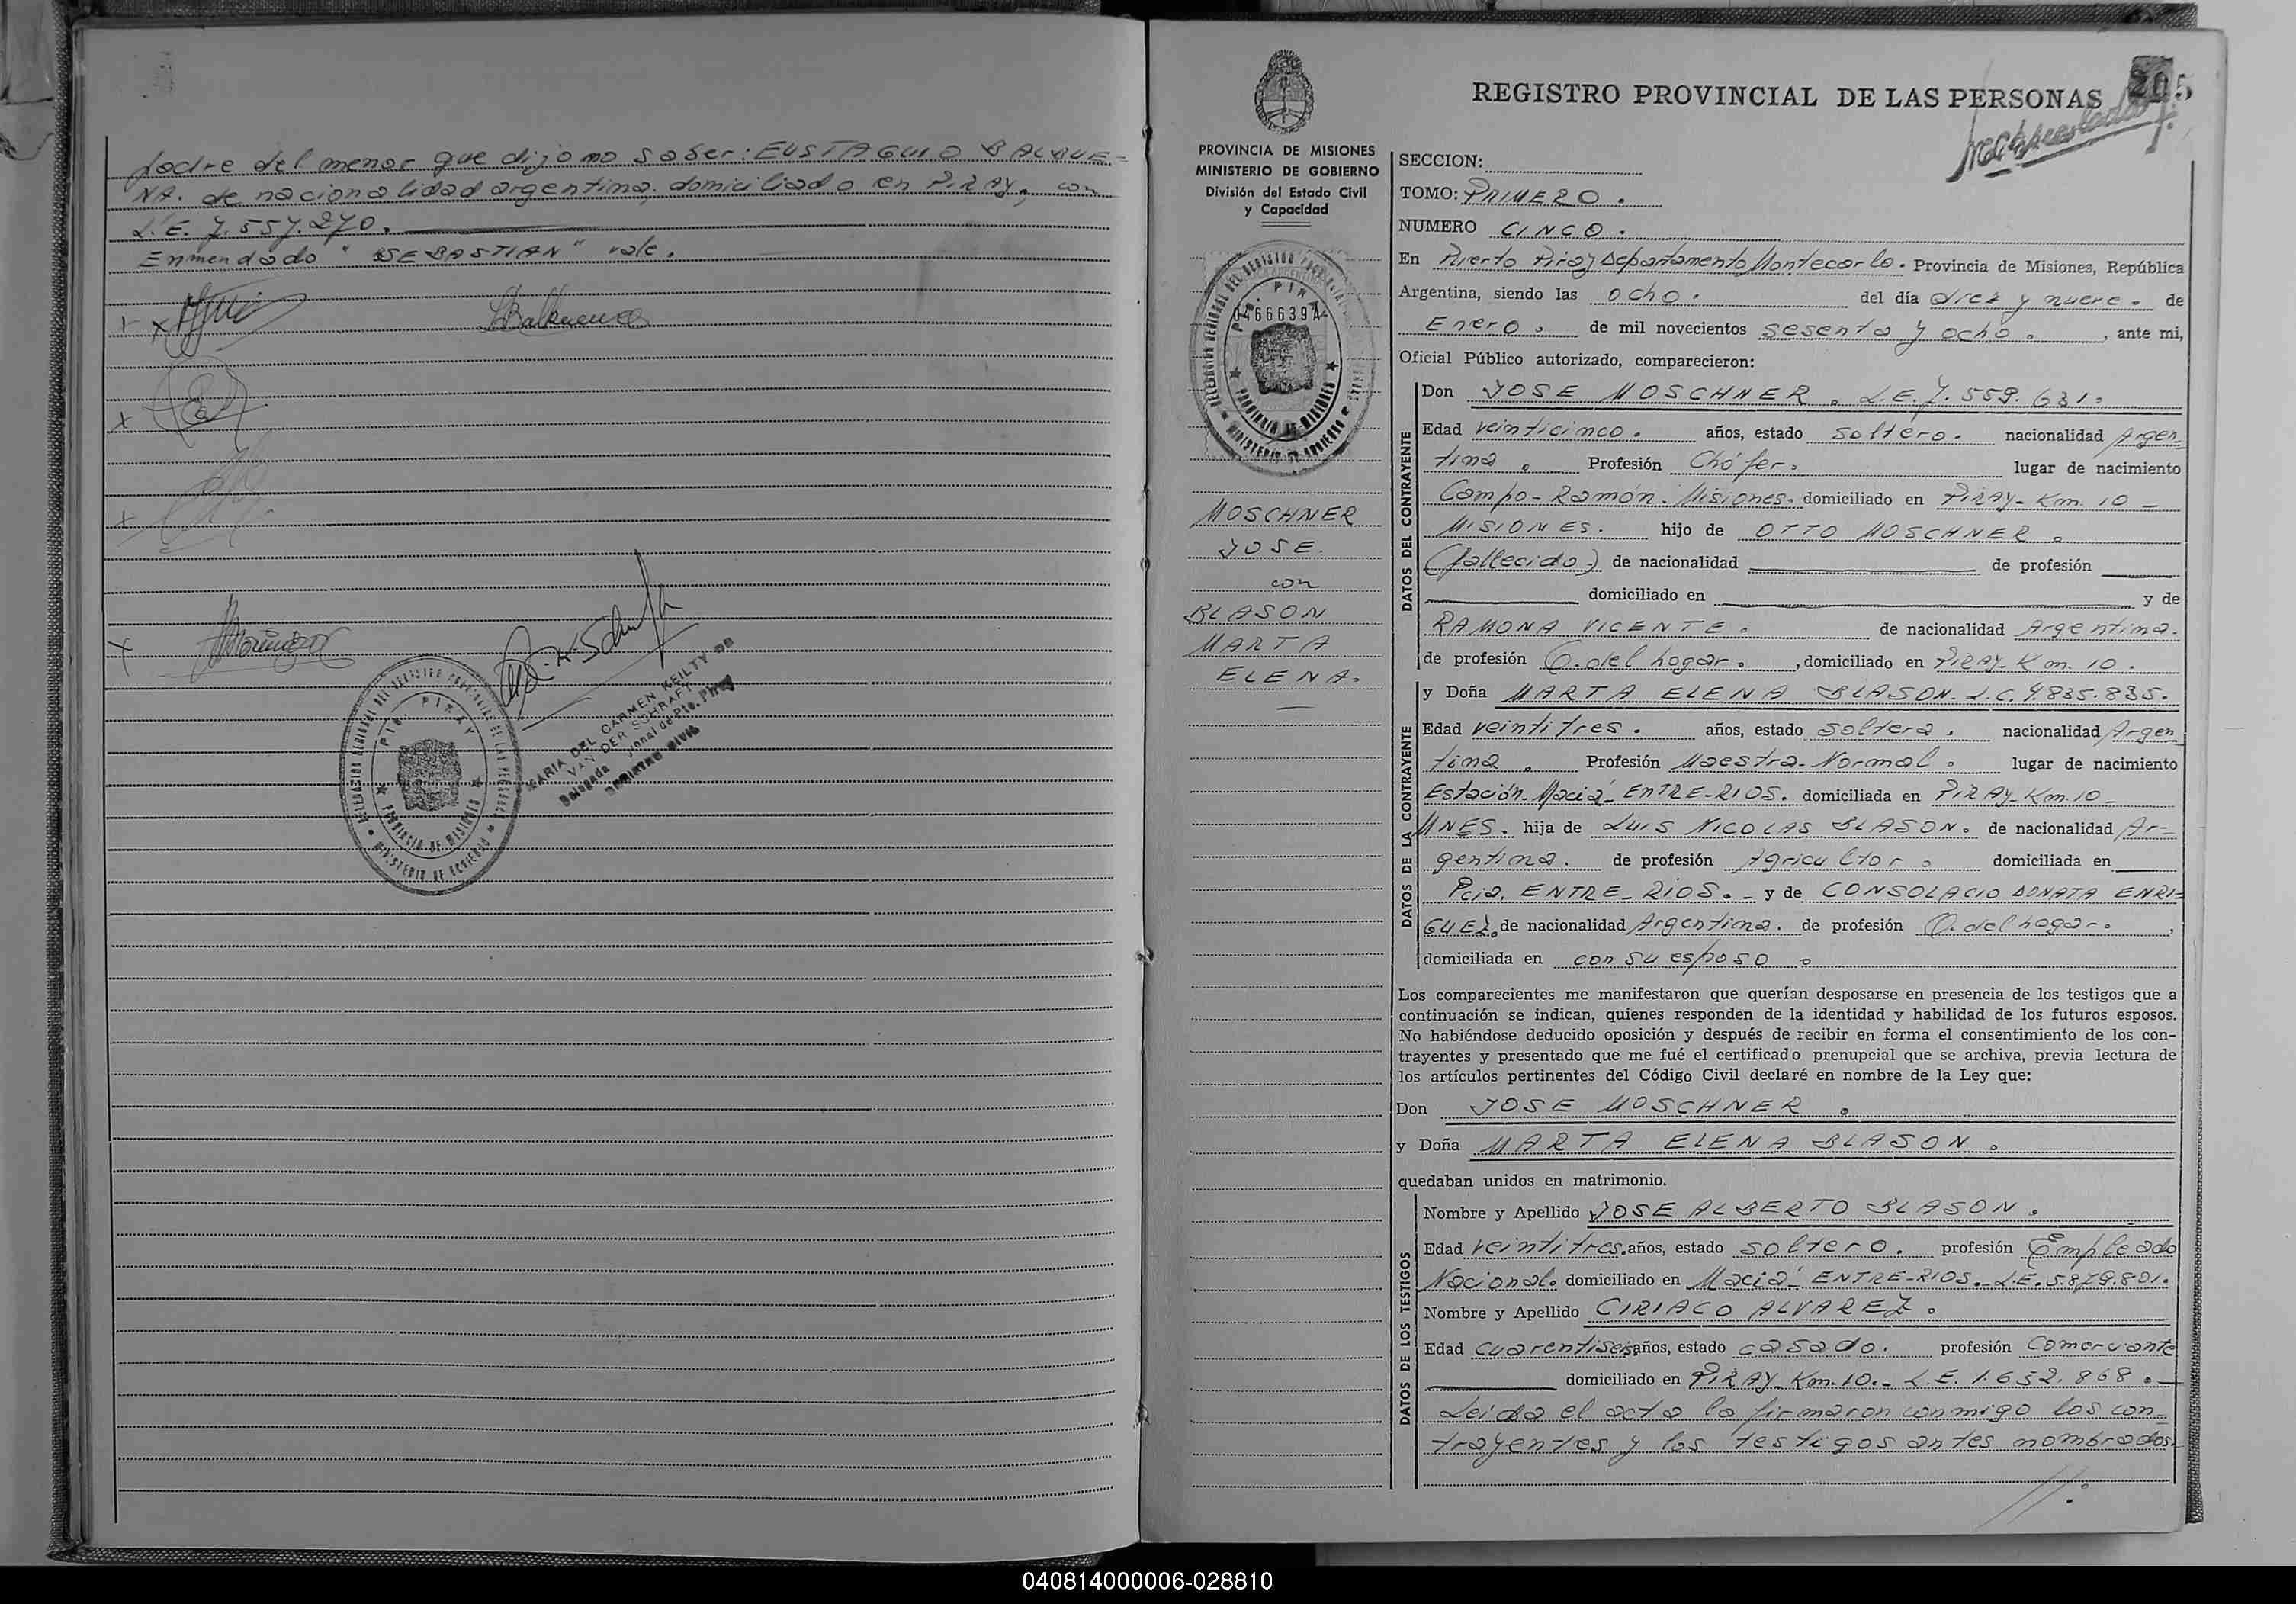 padre del menor que dijo no saber: EUSTAQUIO BALBUE=
NA. de nacionalidad argentina, domiciliado en PIRAY, con
L.E. 7.557.270.
Enmendado "SEBASTIAN" vale.
MARIA DEL CARMEN KEILTY DE
VAN DER SCHRAFT
Delegada Regional de Pto. Piray
REGISTRO CIVIL
DELEGACION REGIONAL DEL REGISTRO PROVINCIAL DE LAS PERSONAS
PTO. PIRAY
PROVINCIA DE MISIONES
MINISTERIO DE GOBIERNO
PROVINCIA DE MISIONES
MINISTERIO DE GOBIERNO
División del Estado Civil
y Capacidad
PTO. PIRAY
PROVINCIA DE MISIONES
MINISTERIO DE GOBIERNO
MOSCHNER
JOSE.
con
BLASON
MARTA
ELENA.
REGISTRO PROVINCIAL DE LAS PERSONAS
205
SECCION:
TOMO: PRIMERO.
NUMERO CINCO.
En Puerto Piray Departamento Montecarlo. Provincia de Misiones, República
Argentina, siendo las ocho. del día diez y nueve. de
Enero. de mil novecientos sesenta y ocho. , ante mi,
Oficial Público autorizado, comparecieron:
DATOS DEL CONTRAYENTE
Don JOSE MOSCHNER. L.E. 7.559.631.
Edad veinticinco. años, estado soltero. nacionalidad Argen=
tina. Profesión Chófer. lugar de nacimiento
Campo-Ramón. Misiones. domiciliado en PIRAY-Km. 10 -
MISIONES. hijo de OTTO MOSCHNER.
(fallecido) de nacionalidad de profesión
domiciliado en y de
RAMONA VICENTE. de nacionalidad Argentina.
de profesión Q. del hogar. , domiciliado en PIRAY-Km. 10.
DATOS DE LA CONTRAYENTE
y Doña MARTA ELENA BLASON. L.C. 4.835.835.
Edad veintitres. años, estado soltera. nacionalidad Argen
tina. Profesión Maestra-Normal. lugar de nacimiento
Estación-Maciá-ENTRE-RIOS. domiciliada en PIRAY-Km.10-
MNES. hija de LUIS NICOLAS BLASON. de nacionalidad Ar=
gentina. de profesión Agricultor. domiciliada en
Pcia. ENTRE-RIOS.- y de CONSOLACIO DONATA ENRI=
GUEZ. de nacionalidad Argentina. de profesión Q. del hogar. ,
domiciliada en con su esposo.
Los comparecientes me manifestaron que querían desposarse en presencia de los testigos que a
continuación se indican, quienes responden de la identidad y habilidad de los futuros esposos.
No habiéndose deducido oposición y después de recibir en forma el consentimiento de los con-
trayentes y presentado que me fué el certificado prenupcial que se archiva, previa lectura de
los artículos pertinentes del Código Civil declaré en nombre de la Ley que:
Don JOSE MOSCHNER.
y Doña MARTA ELENA BLASON.
quedaban unidos en matrimonio.
DATOS DE LOS TESTIGOS
Nombre y Apellido JOSE ALBERTO BLASON.
Edad veintitres. años, estado soltero. profesión Empleado
Nacional. domiciliado en Maciá-ENTRE-RIOS.-L.E. 5.879.801.
Nombre y Apellido CIRIACO ALVAREZ.
Edad cuarentiseis años, estado casado. profesión Comerciante
domiciliado en PIRAY-Km.10.- L.E. 1.652.868.
Leida el acta la firmaron conmigo los con=
trayentes y los testigos antes nombrados.
//.
040814000006-028810